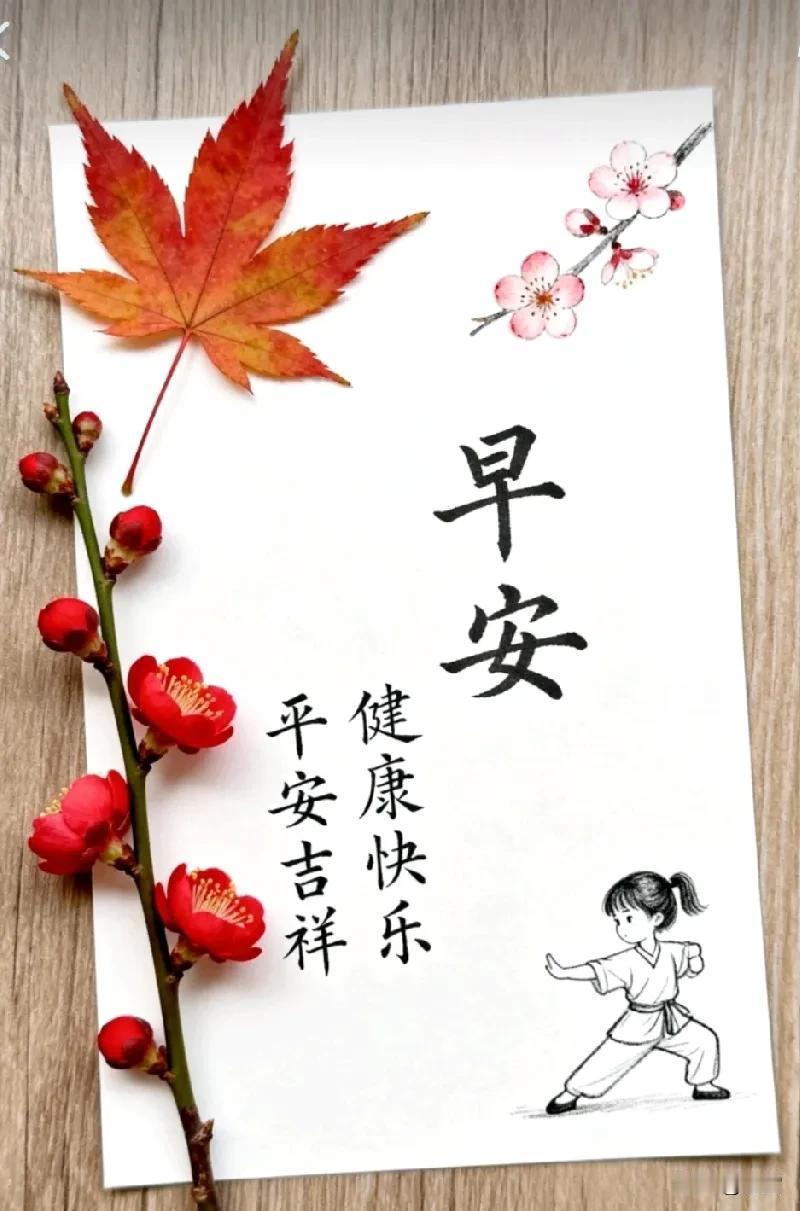 早安
健康快乐
平安吉祥